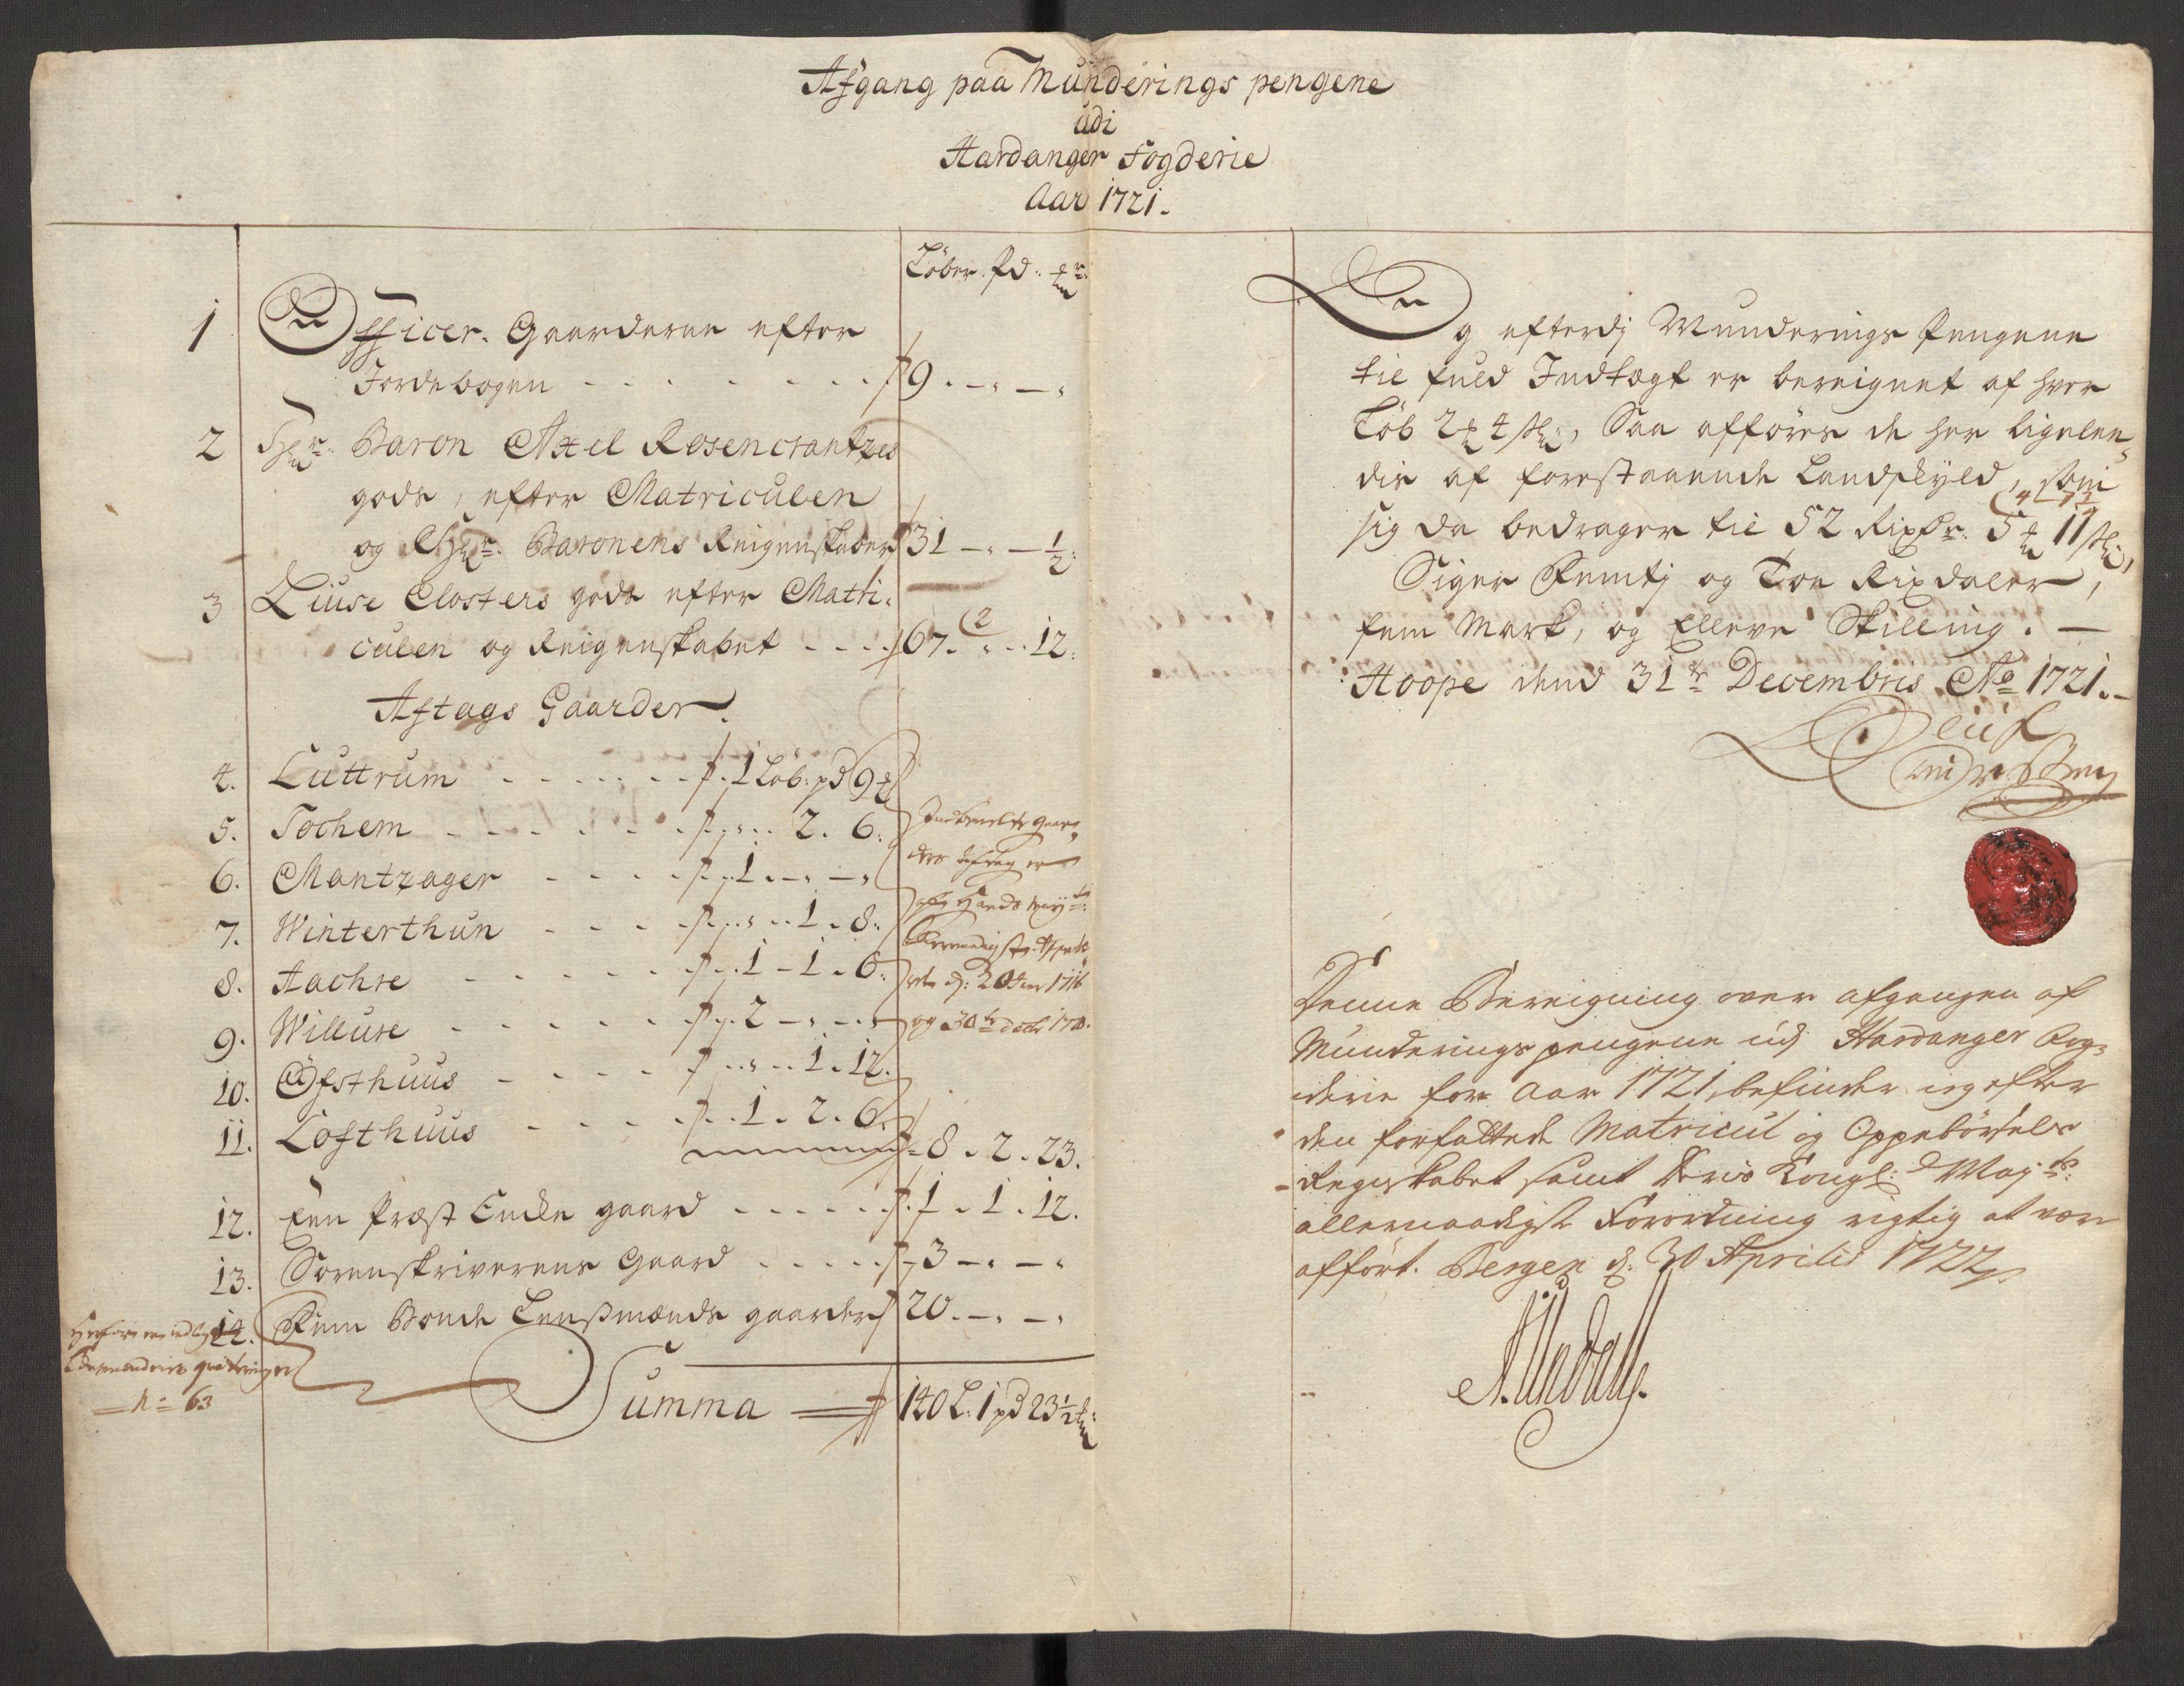 Afgang paa Munderings pengene
udi
Hardanger Fogderie
Aar 1721.
Løber. Pd:
1 Officer. Gaarderne efter
Jordebogen 9 . — . — .
2 Hr. Baron Axel Rosencrantzes
gods, efter Matriculen
og Hr. Baronens Reigenskaber 31 — . — ½:
3 Liuse Closters gods efter Matri-
culen og Reigenskabet 67. 2 . 12:
Aftags Gaarder.
4. Luttrum 1 Løb: pd 9
5. Tochem . . 2 . 6:
6. Mantzager 1 . — . — .
7. Winterthun . . 1 . 8:
8. Aachre 1 - 1 . 6:
9. Willure 2 — . — .
10. Øfsthuus . . 1 . 12.
11. Lofthuus 1 . 2 . 6.
8 . 2 . 23.
Gaar-
ders er
Hands May:
d: 20 1716
og 30
12. Een Præst Encke gaard 1 . 1 . 12.
13. Sorenskriverens Gaard 3 — . — .
14. Fem Bonde Lensmænds gaarder 20. — . — .
No 63
Summa 140 L: 1 pd 23½
Og efterdj Munderings Pengene
til fuld Indtægt er bereignet af hver
Løb 2 4 s:, Saa afføres de her ligelee-
dis af forestaaende Landskyld, som
sig da bedrager til 52 Rixdr: 5 11 s:,
Siger Femtj og Toe Rixdaler,
fem Mark, og Elleve Skilling. —
Hoope dend 31te Decembris Ao 1721.-
Denne Bereigning over afgangen af
Munderings pengene udj Hardanger Fog-
derie for Aar 1721, befindes ieg efter
den forfattede Matricul og Oppebørsels
Regnskabet samt Deris Kongl: Mayts:
allernaadigste Forordning rigtig at være
afført. Bergen d: 30 Aprilis 1722